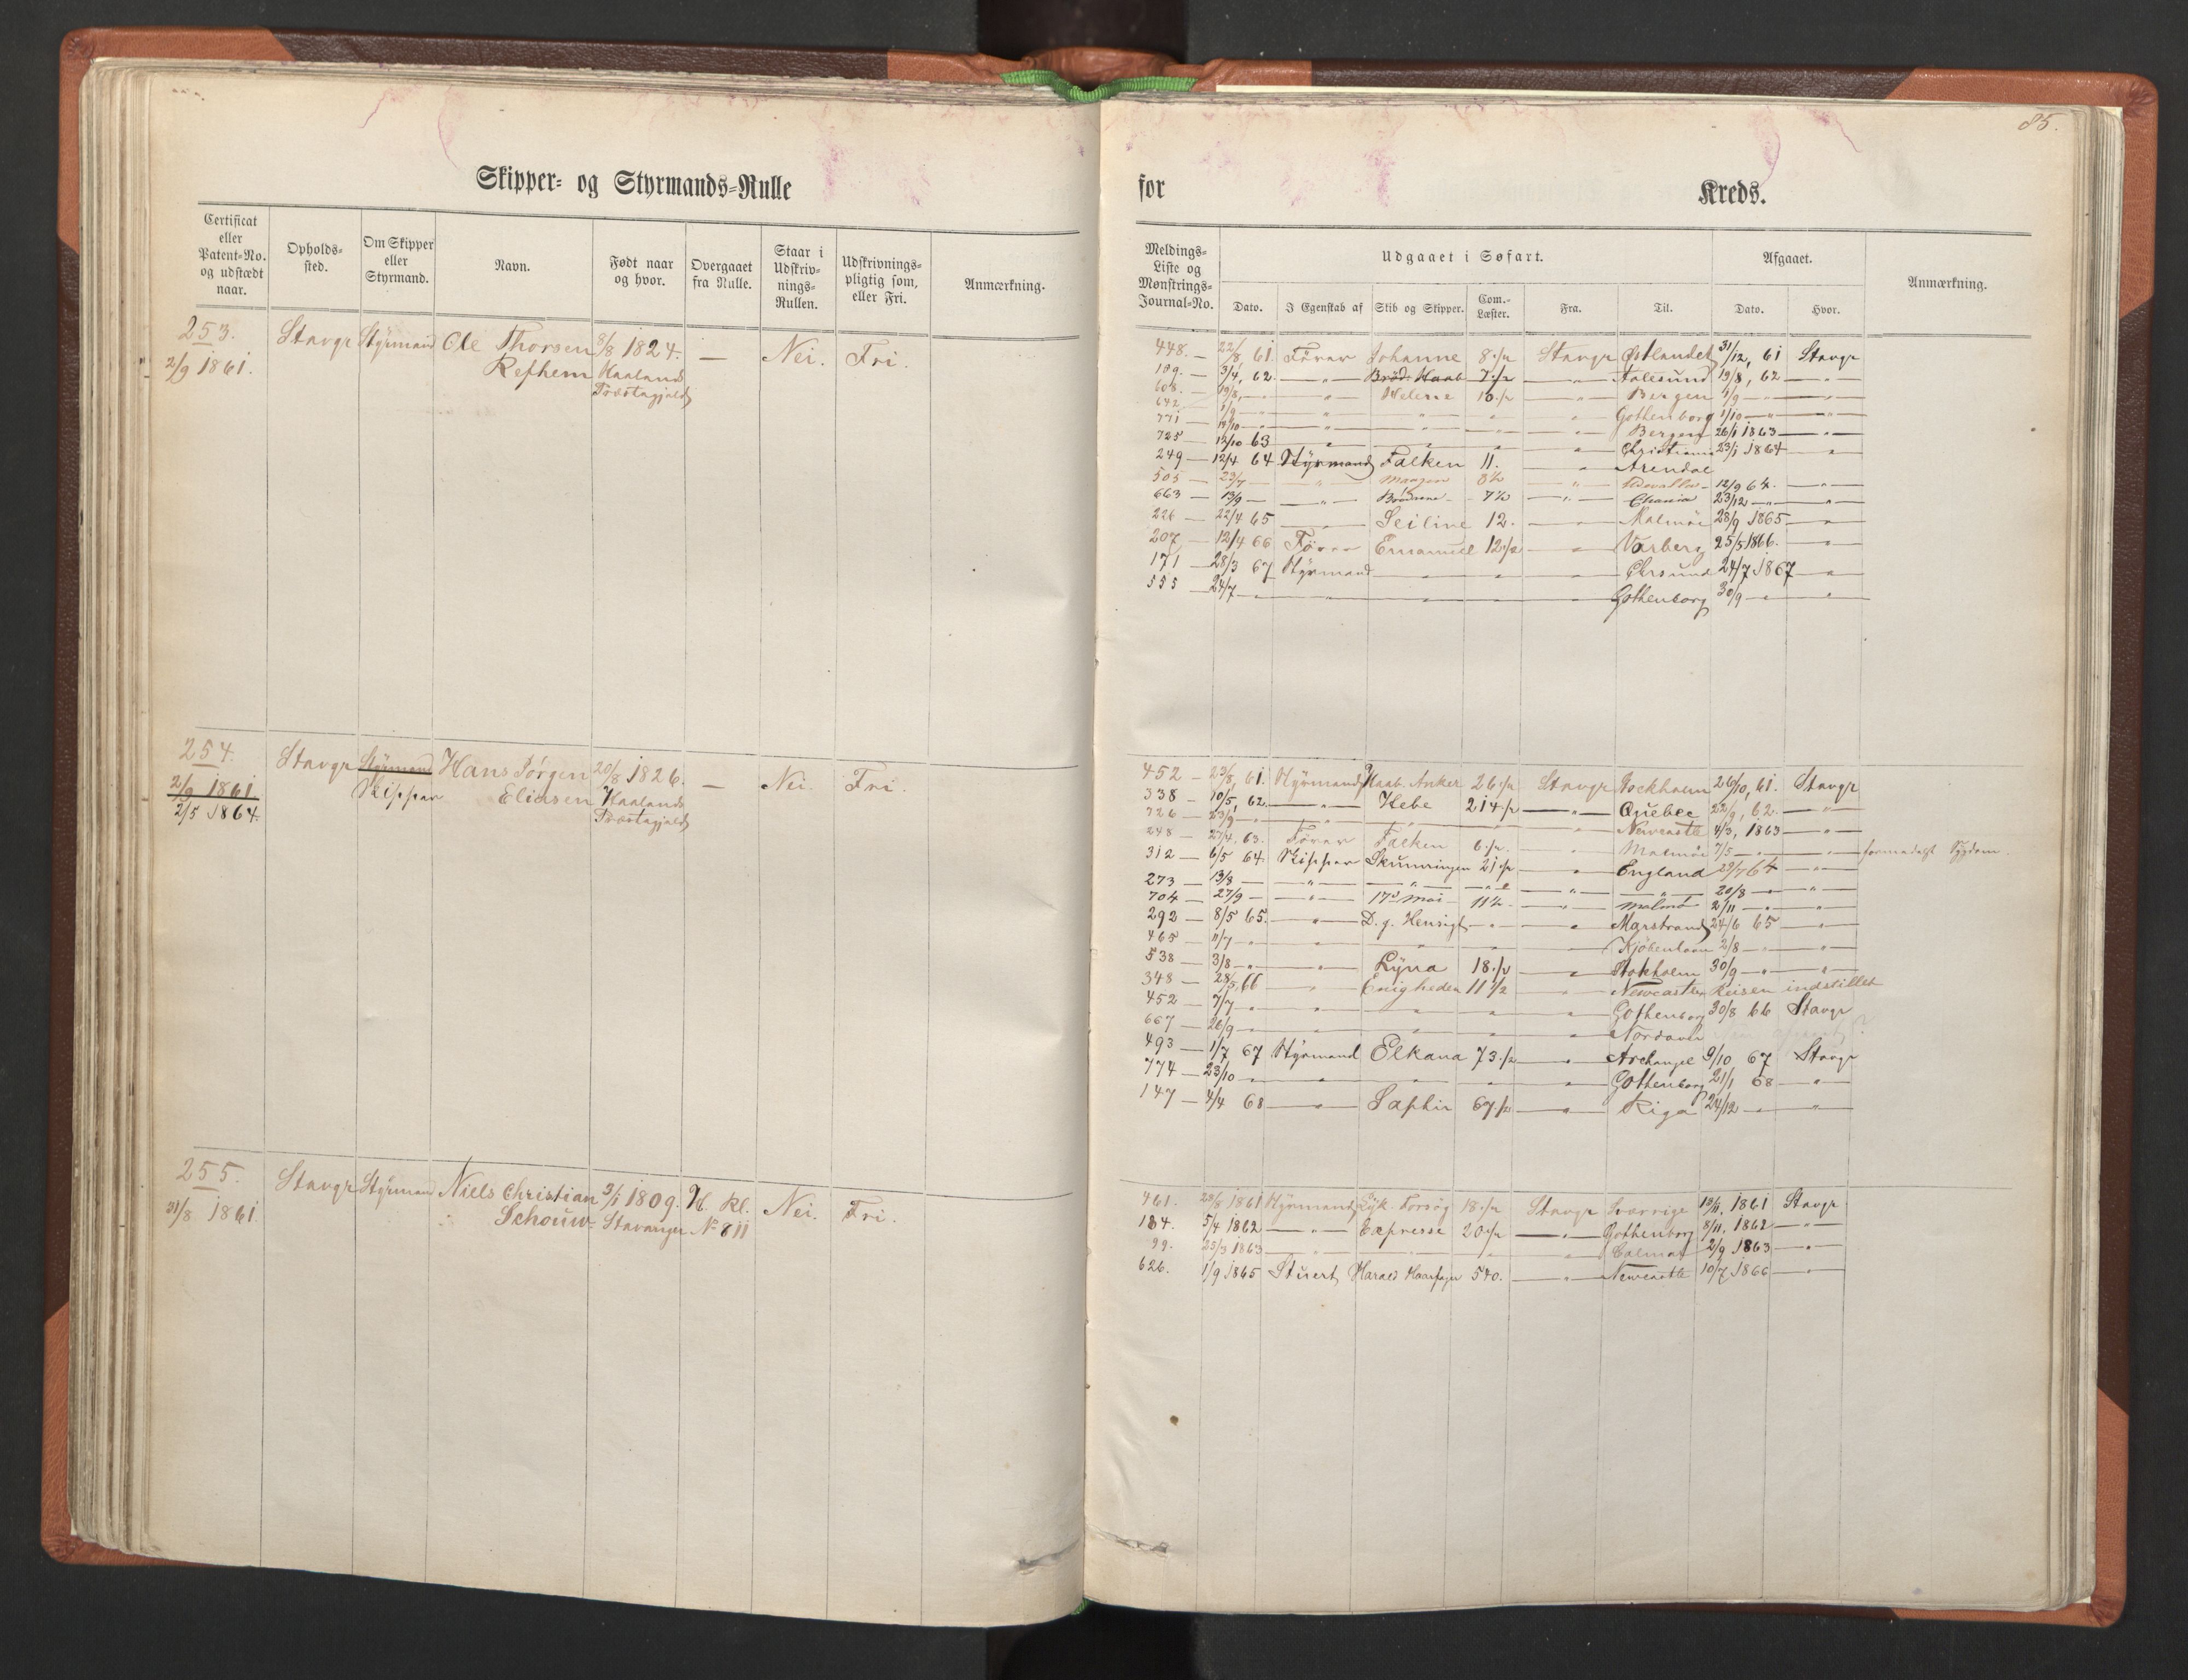 85.
Skipper- og Styrmands-Rulle
for Kreds.
Certificat eller Patent-No. og udstædt naar.
Opholds-sted.
Om Skipper eller Styrmand.
Navn.
Født naar og hvor.
Overgaaet fra Rulle.
Staar i Udskriv-nings-Rullen.
Udskrivnings-pligtig som, eller Fri.
Anmærkning.
Meldings-Liste og Mønstrings-Journal-No.
Udgaaet i Søfart.
Afgaaet.
Anmærkning.
Dato. I Egenskab af Skib og Skipper. Com.-Læster. Fra. Til. Dato. Hvor.
253. Stavgr Styrmand Ole Thorsen 8/8 1824. — Nei. Fri.
2/9 1861. Refhem Haalands
Præstegjeld
448. — 22/8 61. Fører Johanne 8 1/2 Stavgr Østlandet 31/12, 61 Stavgr
189. — 3/4, 62. — " — Brød. Haab 7 1/2 — " — Aalesund 19/8, 62 — " —
608. — 19/8, — " Helene 10 1/2 " Bergen 1/9 — " —
642 — 1/9 — " — " — " — " Gothenborg 1/10 — " —
771 — 14/10 — " — " — " — " Bergen 26/1 1863 — " —
725 — 12/10 63 — " — " — " — " Christiania 23/1 1864 — "
249 — 12/4 64 Styrmand Falken 11. " Arendal
505 — 23/7 — " — 8 1/2 — " — Udevalla — 12/9 64. — " —
663 — 13/9 — " — Brødrene — 7 1/2 — " — Chania 23/12 — " — "
226 — 22/4 65 — " — Seiline 12. — " — Malmøe 28/9 1865 — "
207 — 12/4 66 Fører Emanuel 12 1/2 — " — Varberg 25/5 1866. — "
171 — 28/3 67 Styrmand — " — " — " — Chrsund 24/7 1867 — "
555 — 24/7 — " — " — " — " — " Gothenborg 30/9 — " — "
254. Stavgr Styrmand Hans Jørgen 20/8 1826. — Nei. Fri.
2/9 1861 Skipper Eliasen Haalands
2/5 1864. Præstegjeld
452 — 23/8, 61. Styrmand Haab. Anker 26 1/2 Stavgr Stockholm 26/10, 61. Stavgr
338 — 10/5, 62. — " — Hebe 214 1/2 — " — Quebec 22/9, 62. — " —
726 — 23/9 — " — " — " — " Newcastle 4/3, 1863 — " —
248 — 27/4, 63. Fører Falken 6 1/2. " Malmøe 7/5 — " — " formedelst Sygdom
312 — 6/5 64. Skipper Skumringen 21 1/2 — " England 29/7 64 — " —
273 — 13/8 — " — " — " — " — " — 20/8 — " — "
704 — 27/9 — " — 17de Mai — 11 1/2 — " Malmø 2/11 — " — "
292 — 8/5 65. — " — D. g. Hensigt — " — " Marstrand 24/6 65 — "
465 — 11/7 — " — " — " — " — " Kjøbenhavn 2/8 — " — "
538 — 3/8 — " — " Lyra 18 1/2 — " Stokholm 30/9 — " — "
348 — 28/5, 66 " Enigheden 11 1/2 " Newcastle Reisen indstillet
452 — 7/7 — " — " — " — " — " Gothenborg 30/8 66 Stavgr
667 — 26/9 — " — " — " — " — " Nordover
493 — 1/7 67 Styrmand Elkana 73 1/2 — " Archangel 9/10 67 Stavgr
774 — 23/10 — " — " — " — " — " Gothenborg 21/1 68 — "
147 — 4/4 68 — " — Saphir 67 1/2 — " — Riga 24/12 — " — "
255. Stavgr Styrmand Niels Christian 3/1 1809. H. Kl. Nei. Fri.
31/8 1861. Schouw Stavanger No 811
461. 28/8 1861 Styrmand Lyk. Forsøg 18 1/2 Stavgr Sverrige 13/11, 1861 Stavgr
184. 5/4 1862 — " — Expresse 20 1/2 — " — Gothenborg 8/11, 1862 — " —
99. 25/3 1863 — " — " — " — " Calmar 2/9 1863 — "
626. 1/9 1865 Stuert Harald Haarfager 540. — " — Newcastle 10/7 1866 — "